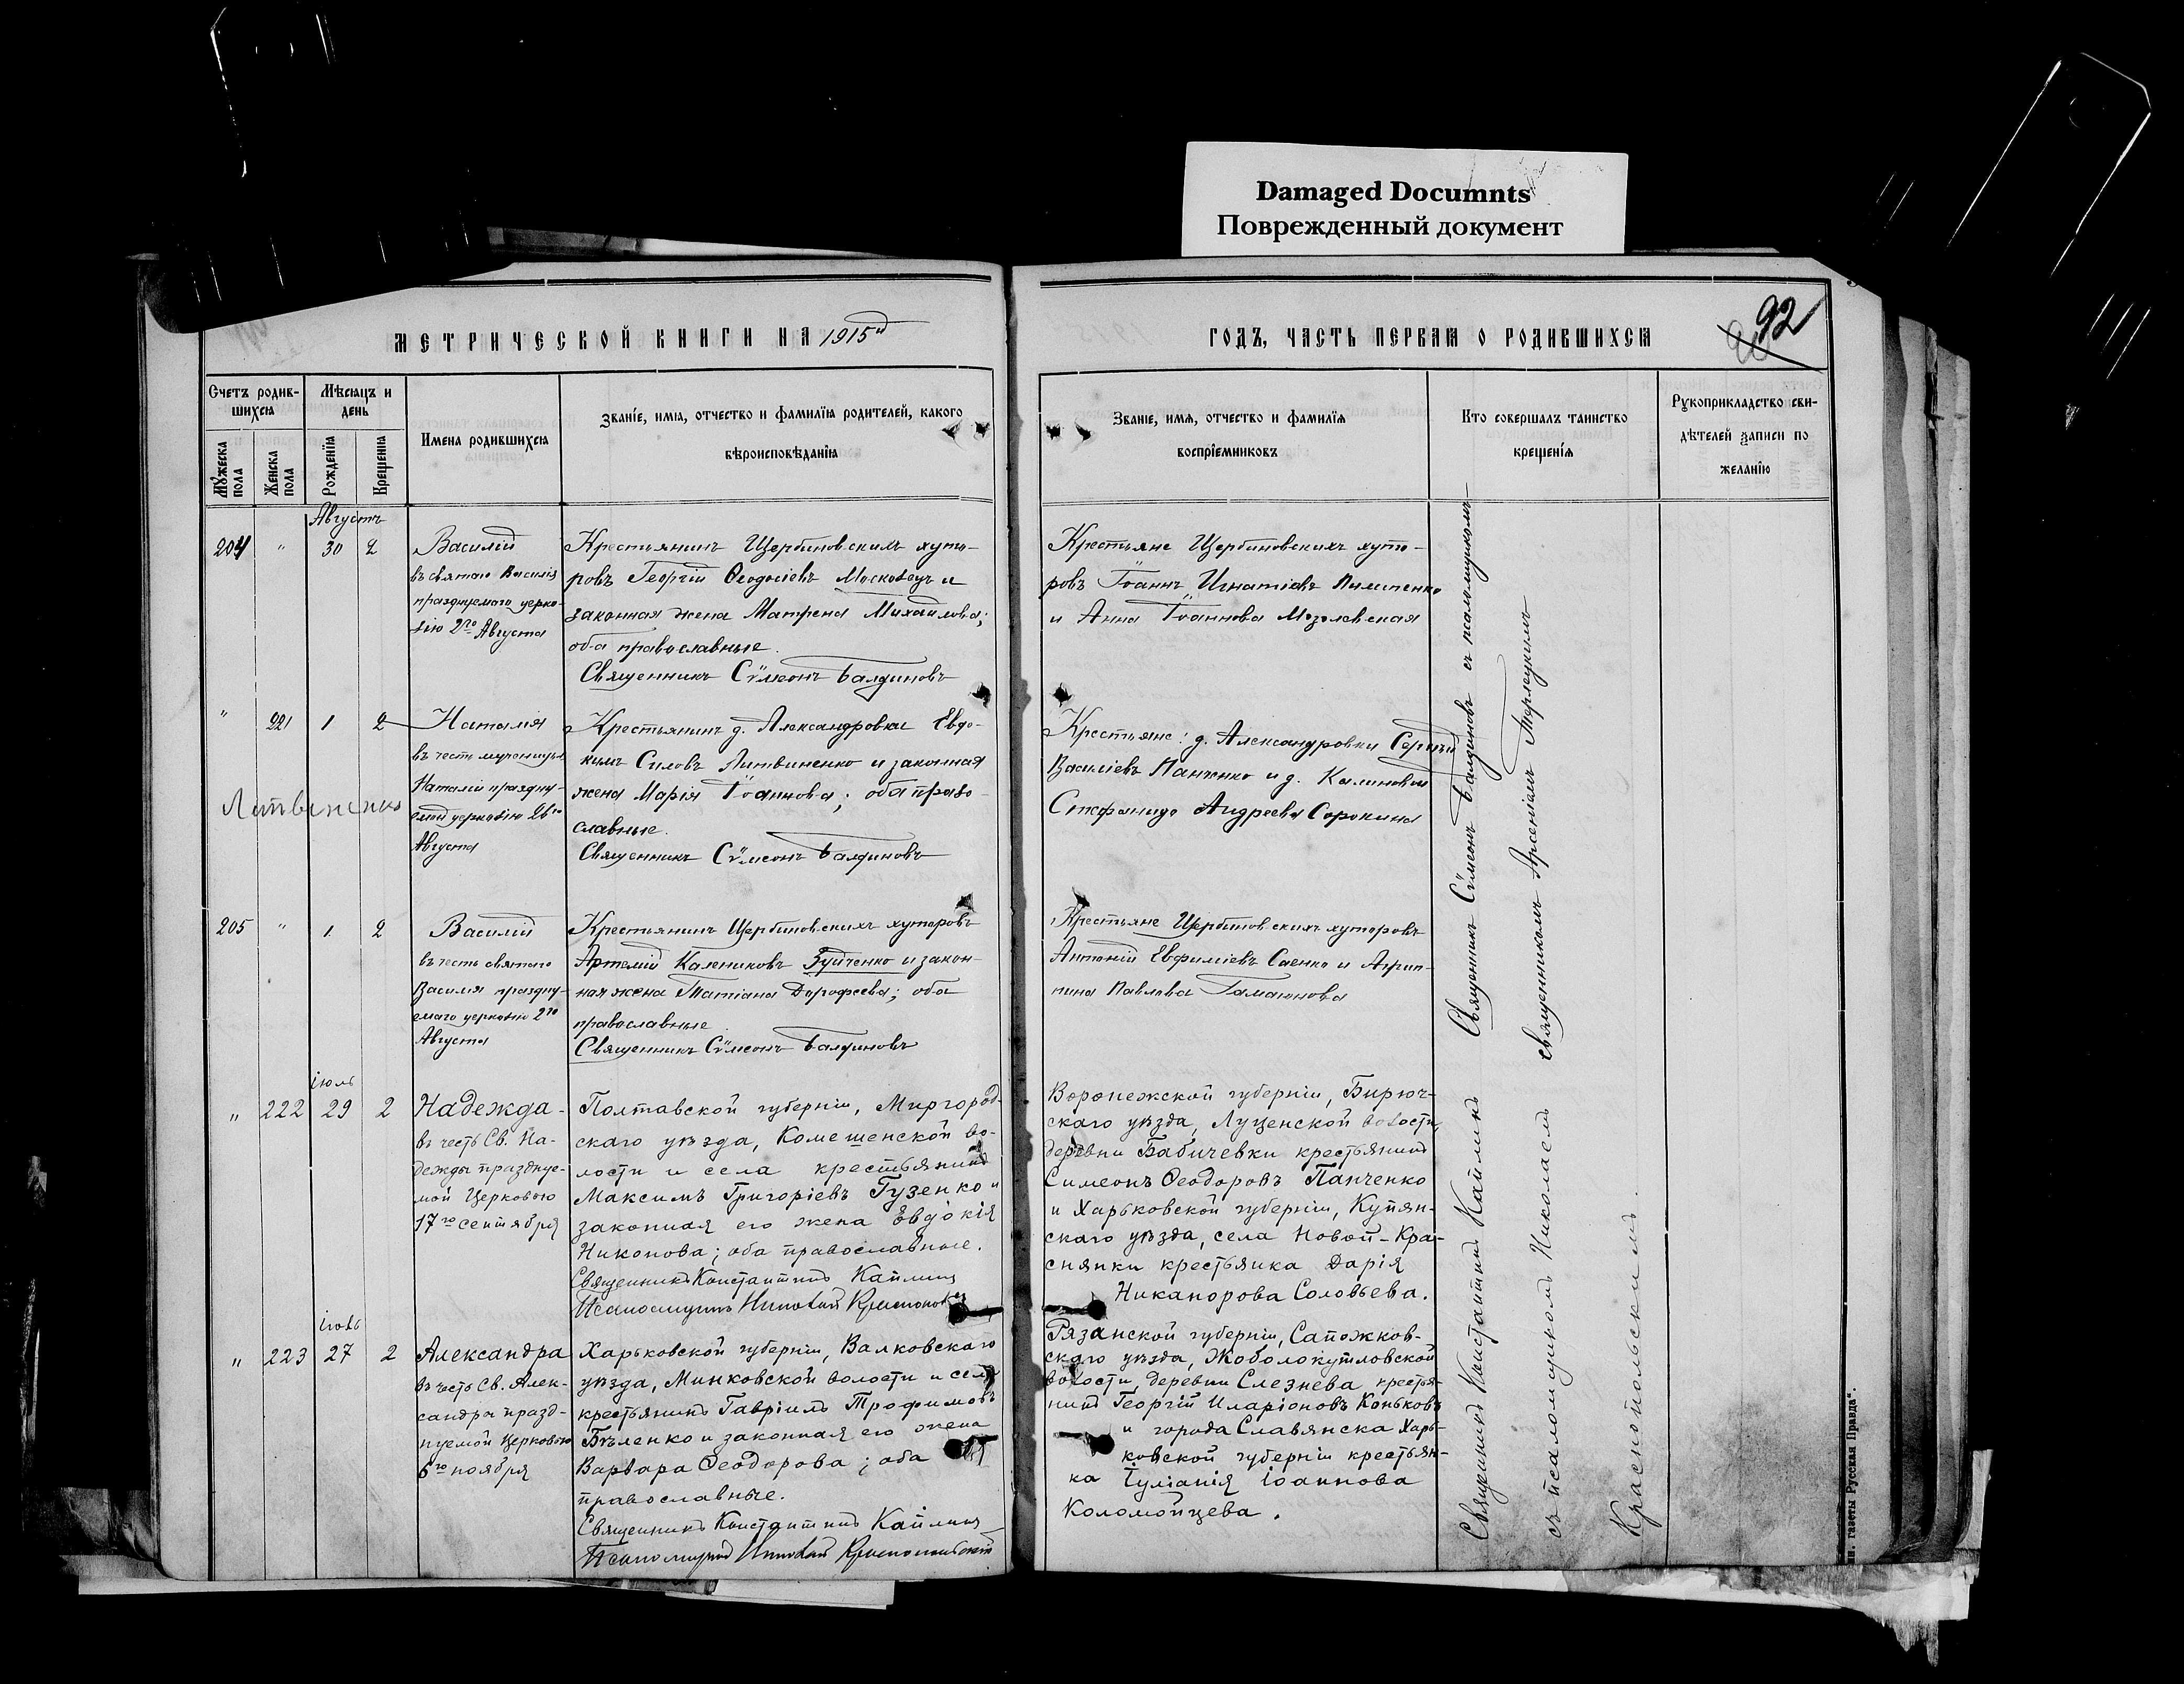 Damaged Documnts
Поврежденный документ
92
МЕТРИЧЕСКОЙ КНИГИ НА 1915й
ГОДЪ, ЧАСТЬ ПЕРВАЯ О РОДИВШИХСЯ
Счетъ родив-
шихся
Мужеска пола
Женска пола
Мѣсяцъ и
день
Рожденїя
Крещенїя
Имена родившихся
Званїе, имя, отчество и фамилїя родителей, какого
вѣроисповѣданїя
Званїе, имя, отчество и фамилїя
воспрїемниковъ
Кто совершалъ таинство
крещенїя
Рукоприкладство сви-
дѣтелей записи по
желанїю
Августъ
204 " 30 2
Василій
въ святаго Василія
празднуемаго церко-
вію 2го Августа
Крестьянинъ Щербиновскихъ хуто-
ровъ Георгій Ѳеодосіевъ Московецъ и
законная жена Матрена Михаилова;
оба православные.
Священникъ Сѵмеонъ Балдиновъ
Крестьяне Щербиновскихъ хуто-
ровъ Іоаннъ Игнатіевъ Пилипенко
и Анна Іоаннова Мозолевская
" 221 1 2
Наталія
въ честь мученицы
Наталіи праздну-
емой церковію 26го
Августа
Литвиненко
Крестьянинъ д. Александровки Евдо-
кимъ Силовъ Литвиненко и законная
жена Марія Іоаннова; оба право-
славные.
Священникъ Сѵмеонъ Балдиновъ
Крестьяне: д. Александровки Сергѣй
Василіевъ Панченко и д. Калиновки
Стефанида Андреева Сорокина
205 " 1 2
Василій
въ честь святаго
Василія праздну-
емаго церковію 2го
Августа
Крестьянинъ Щербиновскихъ хуторовъ
Артемій Калениковъ Зуйченко и закон-
ная жена Татіана Дорофеева; оба
православные
Священникъ Сѵмеонъ Балдиновъ
Крестьяне Щербиновскихъ хуторовъ
Антоній Евфиміевъ Саенко и Агрип-
пина Павлова Гамаюнова
Священникъ Сѵмеонъ Балдиновъ съ псаломщикомъ
священникомъ Арсеніемъ Терлецкимъ
іюль
" 222 29 2
Надежда-
въ честь Св. На-
дежды праздуе-
мой Церковью
17го сентября
Полтавской губерніи, Миргород-
скаго уѣзда, Комешенской во-
лости и села крестьянинъ
Максимъ Григоріевъ Гузенко и
законная его жена Евдокія
Никонова; оба православные.
Священникъ Константинъ Каплинъ
Псаломщикъ Николай Краснопольскій
Воронежской губерніи, Бирюч-
скаго уѣзда, Луценской волости,
деревни Бабичевки крестьянинъ
Симеонъ Ѳеодоровъ Панченко
и Харьковской губерніи, Купян-
скаго уѣзда, села Новой-Кра-
снянки крестьянка Дарія
Никанорова Соловьева.
іюль
" 223 27 2
Александра
въ честь Св. Алек-
сандры празд-
нуемой Церковью
6го ноября
Харьковской губерніи, Валковскаго
уѣзда, Минковской волости и села
крестьянинъ Гавріилъ Трофимовъ
Бѣленко и законная его жена
Варвара Ѳеодорова; оба
православные.
Священникъ Константинъ Каплинъ
Псаломщикъ Николай Краснопольскій
Рязанской губерніи, Сапожков-
скаго уѣзда,
волости, деревни Слезнева крестья-
нинъ Георгій Иларіоновъ Коньковъ
и города Славянска Харь-
ковской губерніи крестьян-
ка Іуліанія Іоаннова
Коломойцева.
Священникъ Константинъ Каплинъ
съ псаломщикомъ Николаемъ
Краснопольскимъ.
газеты Русская Правда".